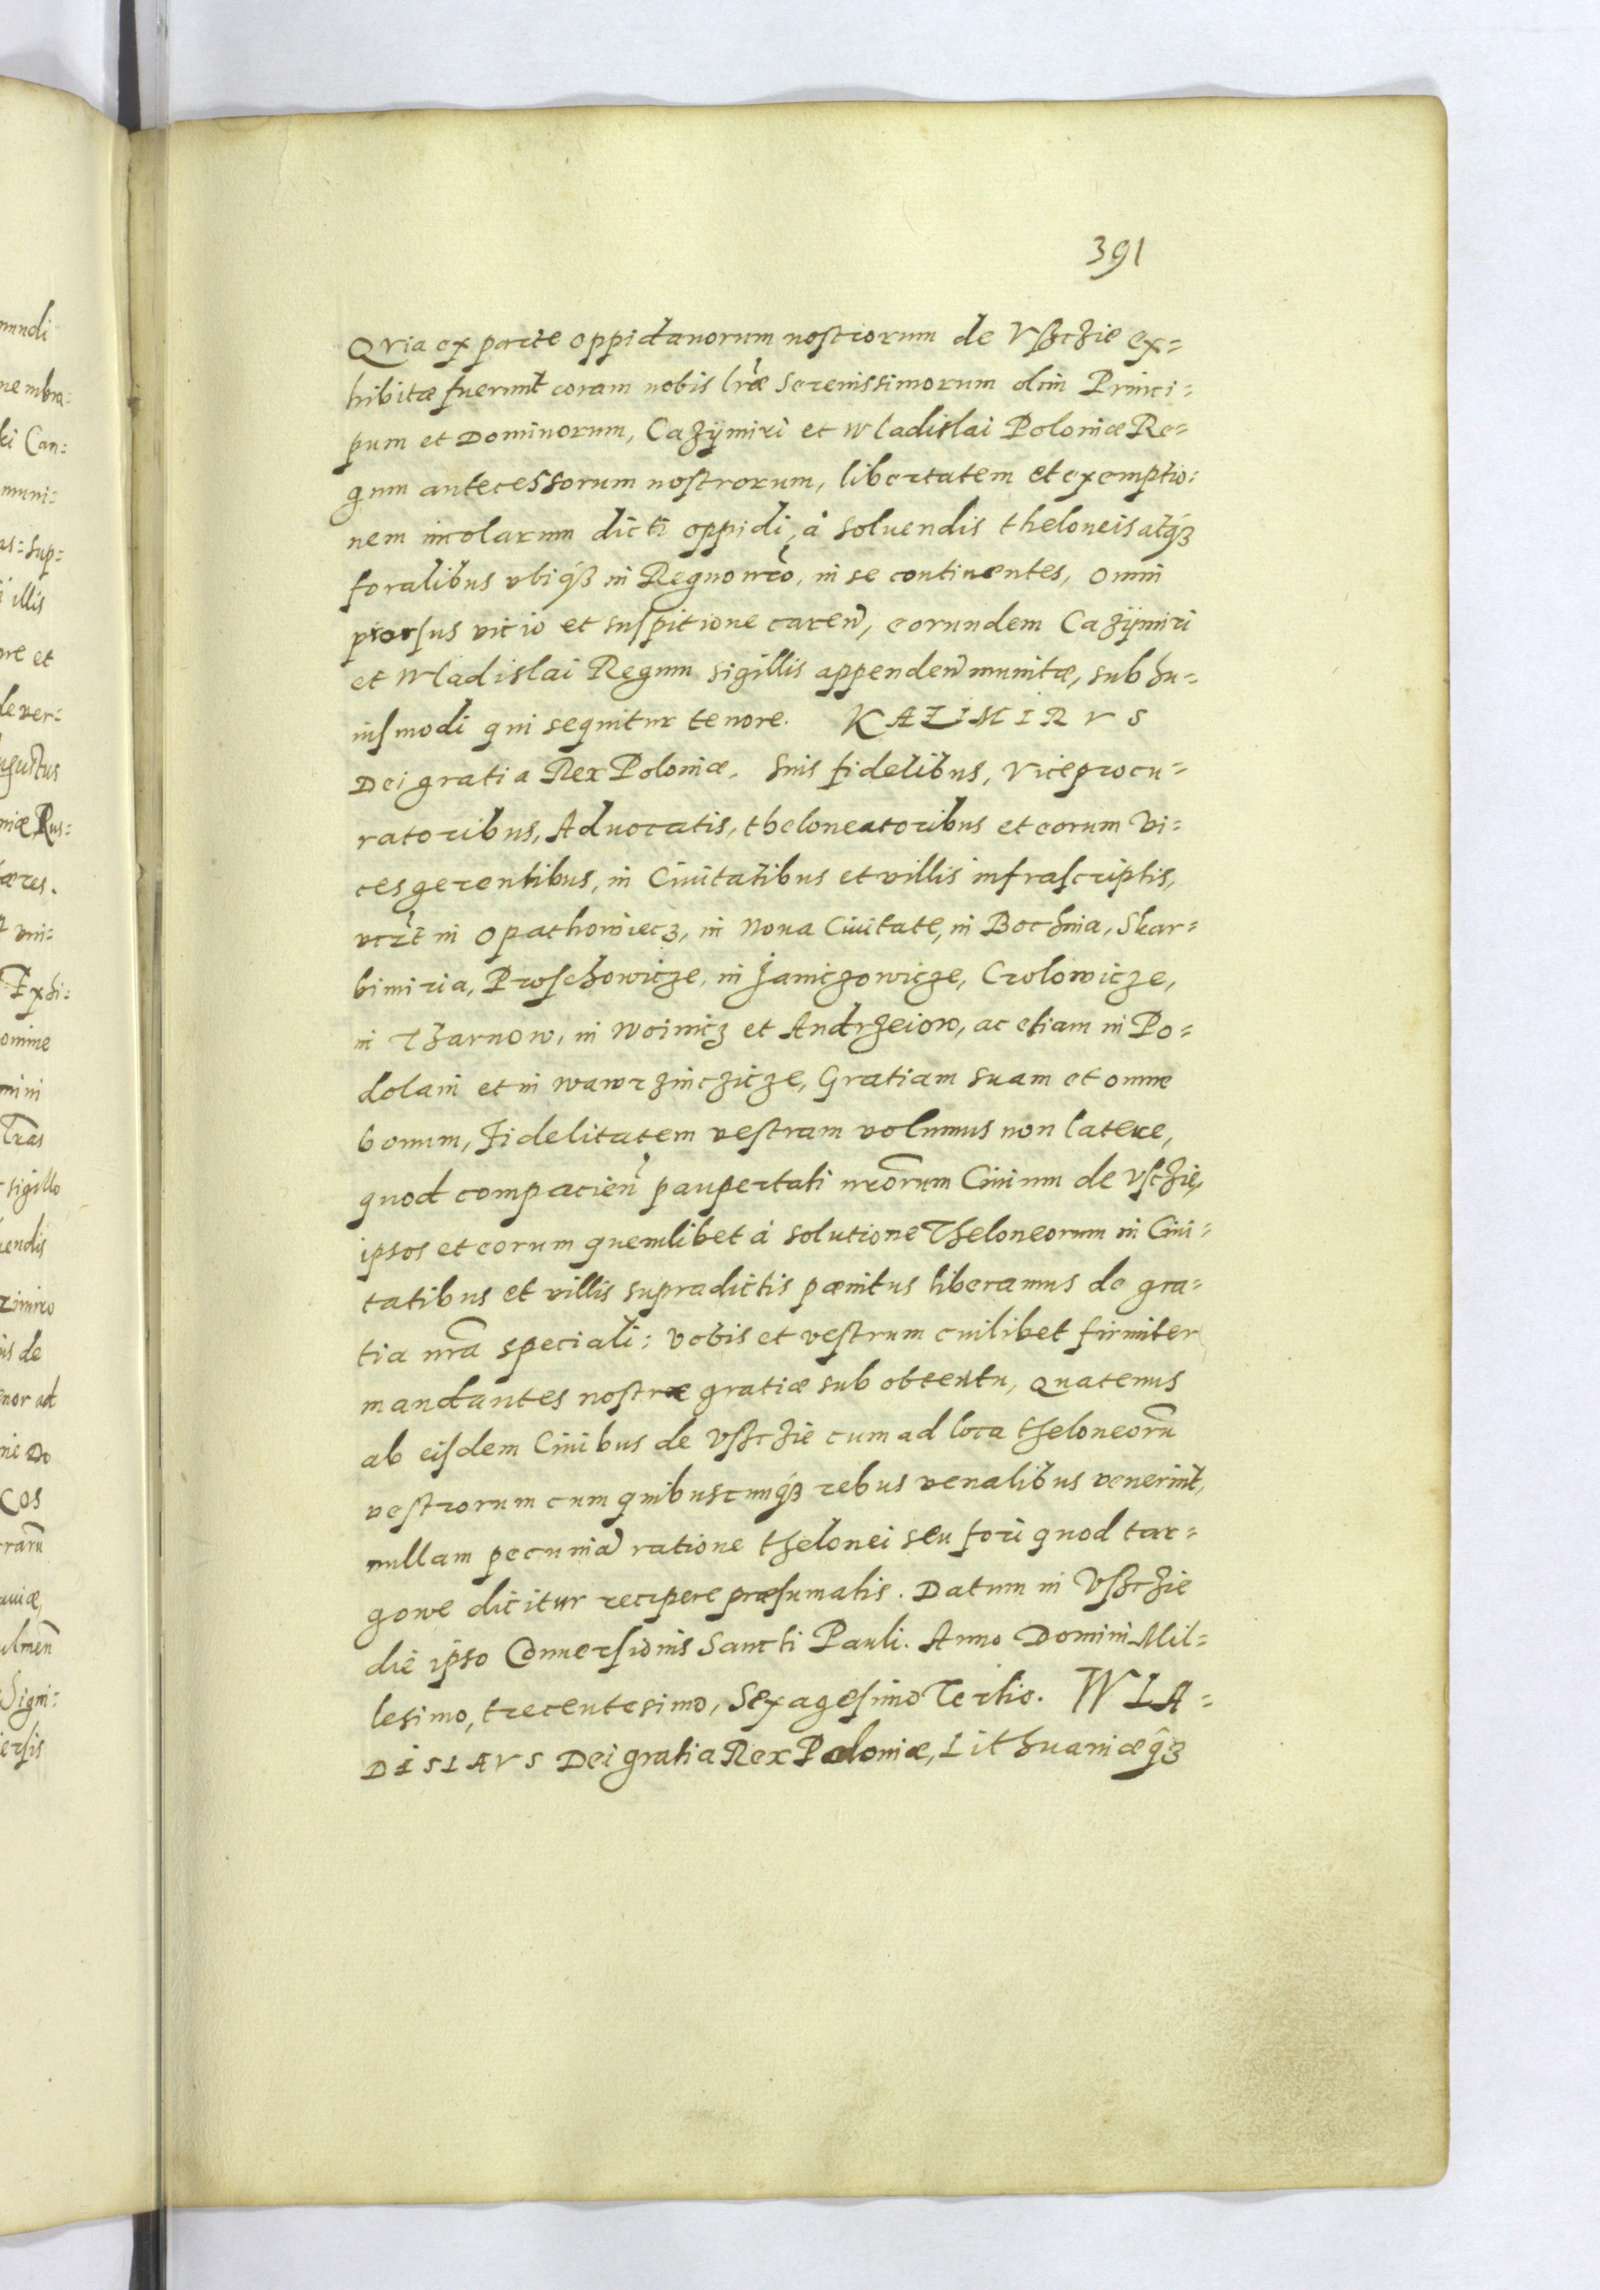 391
QVia ex parte oppidanorum nostrorum de Vßchie ex=
hibitæ fuerunt coram nobis lr̃æ Serenissimorum olim Princi=
pum et Dominorum, Cazÿmiri et Wladislai Poloniæ Re=
gum antecessorum nostrorum, libertatem et exemptio:
nem incolarum dicti oppidi, à soluendis theloneis atq́ꝫ
foralibus vbiq́ꝫ in Regno nr̃o, in se continentes, omni
prorsus vicio et suspitione caren̄, eorundem Cazÿmiri
et Wladislai Regum sigillis appenden̄ munitæ, sub hu=
iusmodi qui sequitur tenore. KAZIMIRVS
Dei gratia Rex Poloniæ. Suis fidelibus, Viceprocu=
ratoribus, Aduocatis, theloneatoribus et eorum vi=
cesgerentibus, in Ciuitatibus et villis infrascriptis,
vcz̃t in Opathowiecz, in Noua Ciuitate, in Bochnia, Skar=
bimiria, Proschowicze, in Janiczowicze, Crolowicze,
in Tharnow, in Woinicz et Andrzeiow, ac etiam in Po=
dolain et in Wawrzinczicze, Gratiam suam et omne
bonum, Fidelitatem vestram volumus non latere,
quod compacien̄ paupertati nr̃orum Ciuium de Vschie,
ipsos et eorum quemlibet à solutione Theloneorum in Ciui=
tatibus et villis supradictis pænitus liberamus de gra=
tia nr̃a speciali: vobis et vestrum cuilibet firmiter
mandantes nostræ gratiæ sub obtentu, quatenus
ab eisdem Ciuibus de Vßchie cum ad loca theloneorū
vestrorum cum quibuscunq́ꝫ rebus venalibus venerint,
nullam pecuniā ratione thelonei seu fori quod tar=
gowe dicitur recipere præsumatis. Datum in Vßchie
die ipso Conuersionis Sancti Pauli. Anno Domini Mil=
lesimo, trecentesimo, Sexagesimo Tertio. WLA=
DISLAVS Dei gratia Rex Poloniæ, Lithuaniæq́ꝫ